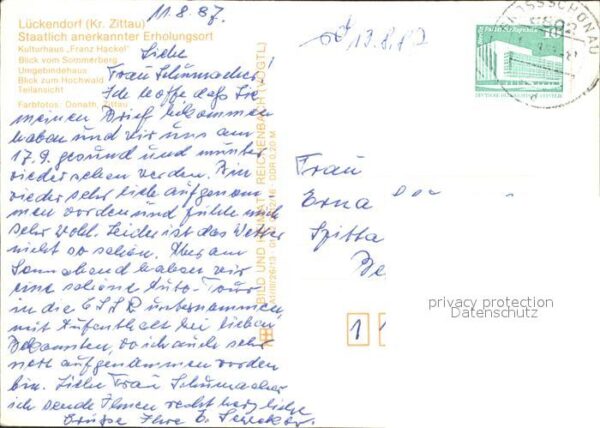 11.8.87.
Lückendorf (Kr. Zittau)
Staatlich anerkannter Erholungsort
Kulturhaus "Franz Hackel"
Blick vom Sommerberg
Umgebindehaus
Blick zum Hochwald
Teilansicht
Farbfotos: Donath, Zittau
Liebe
Frau Schumacher!
Ich hoffe daß Sie
meinen Brief bekommen
haben und wir uns am
17.9. gesund und munter
wieder sehen werden. Bin
wieder sehr lieb aufgenom
men worden und fühle mich
sehr wohl. Leider ist das Wetter
nicht so schön. Aber am
Sonnabend haben wir
eine schöne Auto-Tour
in die CSSR unternommen,
mit Aufenthalt bei lieben
Bekannten, wo ich auch sehr
nett aufgenommen worden
bin. Liebe Frau Schumacher
ich sende Ihnen recht herzliche
Grüße Ihre E.
BILD UND HEIMAT REICHENBACH (VOGTL)
DDR 0,20 M
13.8.87
GROSSSCHÖNAU
10
Frau
Erna
Spitta
Be
1 1
privacy protection
Datenschutz